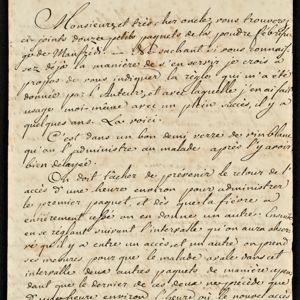 Monsieur et très cher oncle, vous trouverez
ci-joints douze petits paquets de la poudre fébrifu-
ge de
Quoique vous connais-
sez déjà la manière de s'en servir je crois à
propos de vous indiquer la règle qui m'a été
donnée par l'Auteur, et avec laquelle j'en ai fait
usage moi-même avec un plein succès, il y a
quelques ans. La voici.
C'est dans un bon demi verre de vin blanc
qu'on l'administre au malade après l'y avoir
bien délayée.
On doit tâcher de prévenir le retour de l'ac-
cès d'une heure environ pour administrer
le premier paquet, et dès que la fièvre a
entièrement cessé on en donne un autre. Ensui-
te en réglant suivant l'intervalle qu'on aura obser-
vé qu'il y a entre un accès, et un autre on prend
ses mesures pour que le malade avale dans cet
intervalle deux autres paquets de manière cepen-
dant que le dernier de ces deux ne précède que
d'une heure environ l'heure où le nouvel accès